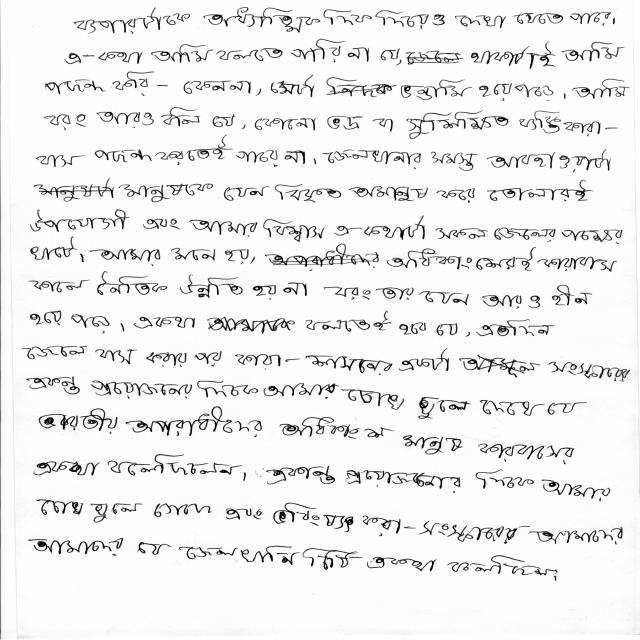 ব্যাপারটাকে আধ্যাত্মিক দিক দিয়েও দেখা যেতে পারে।
এ-কথা আমি বলতে পারি না যে, জেলে থাকাটাই আমি
পছন্দ করি - কেননা, সেটা নিছক ভন্ডামি হয়ে পড়ে। আমি
বরং আরও বলি যে, কোনো ভদ্র বা সুশিক্ষিত ব্যক্তি কারা-
বাস পছন্দ করতেই পারে না। জেলখানার সমস্ত আবহাওয়াটা
মানুষটা মানুষকে যেন বিকৃত অমানুষ করে তোলারই
উপযোগী এবং আমার বিশ্বাস এ-কথাটা সকল জেলের পক্ষেই
খাটে। আমার মনে হয়, অপরাধীদের অধিকাংশেরই কারাবাস
কালে নৈতিক উন্নতি হয় না বরং তার যেন আরও হীন
হয়ে পড়ে। একথা আমাকে বলতেই হবে যে, এতদিন
জেলে বাস করার পর কারা-শাসনের একটা আমূল সংস্কারের
একান্ত প্রয়োজনের দিকে আমার চোখ খুলে দেখে যে
ভারতীয় অপরাধীদের অধিকাংশ মানুষ কারবাসের
একথা বলেদিলেন, একান্ত প্রয়োজনের দিকে আমার
চোখ খুলে গেছে এবং ভবিষ্যৎ কারা-সংস্কারের আমাদের
আমাদের যে জেলখানি একথা বলেদিল।